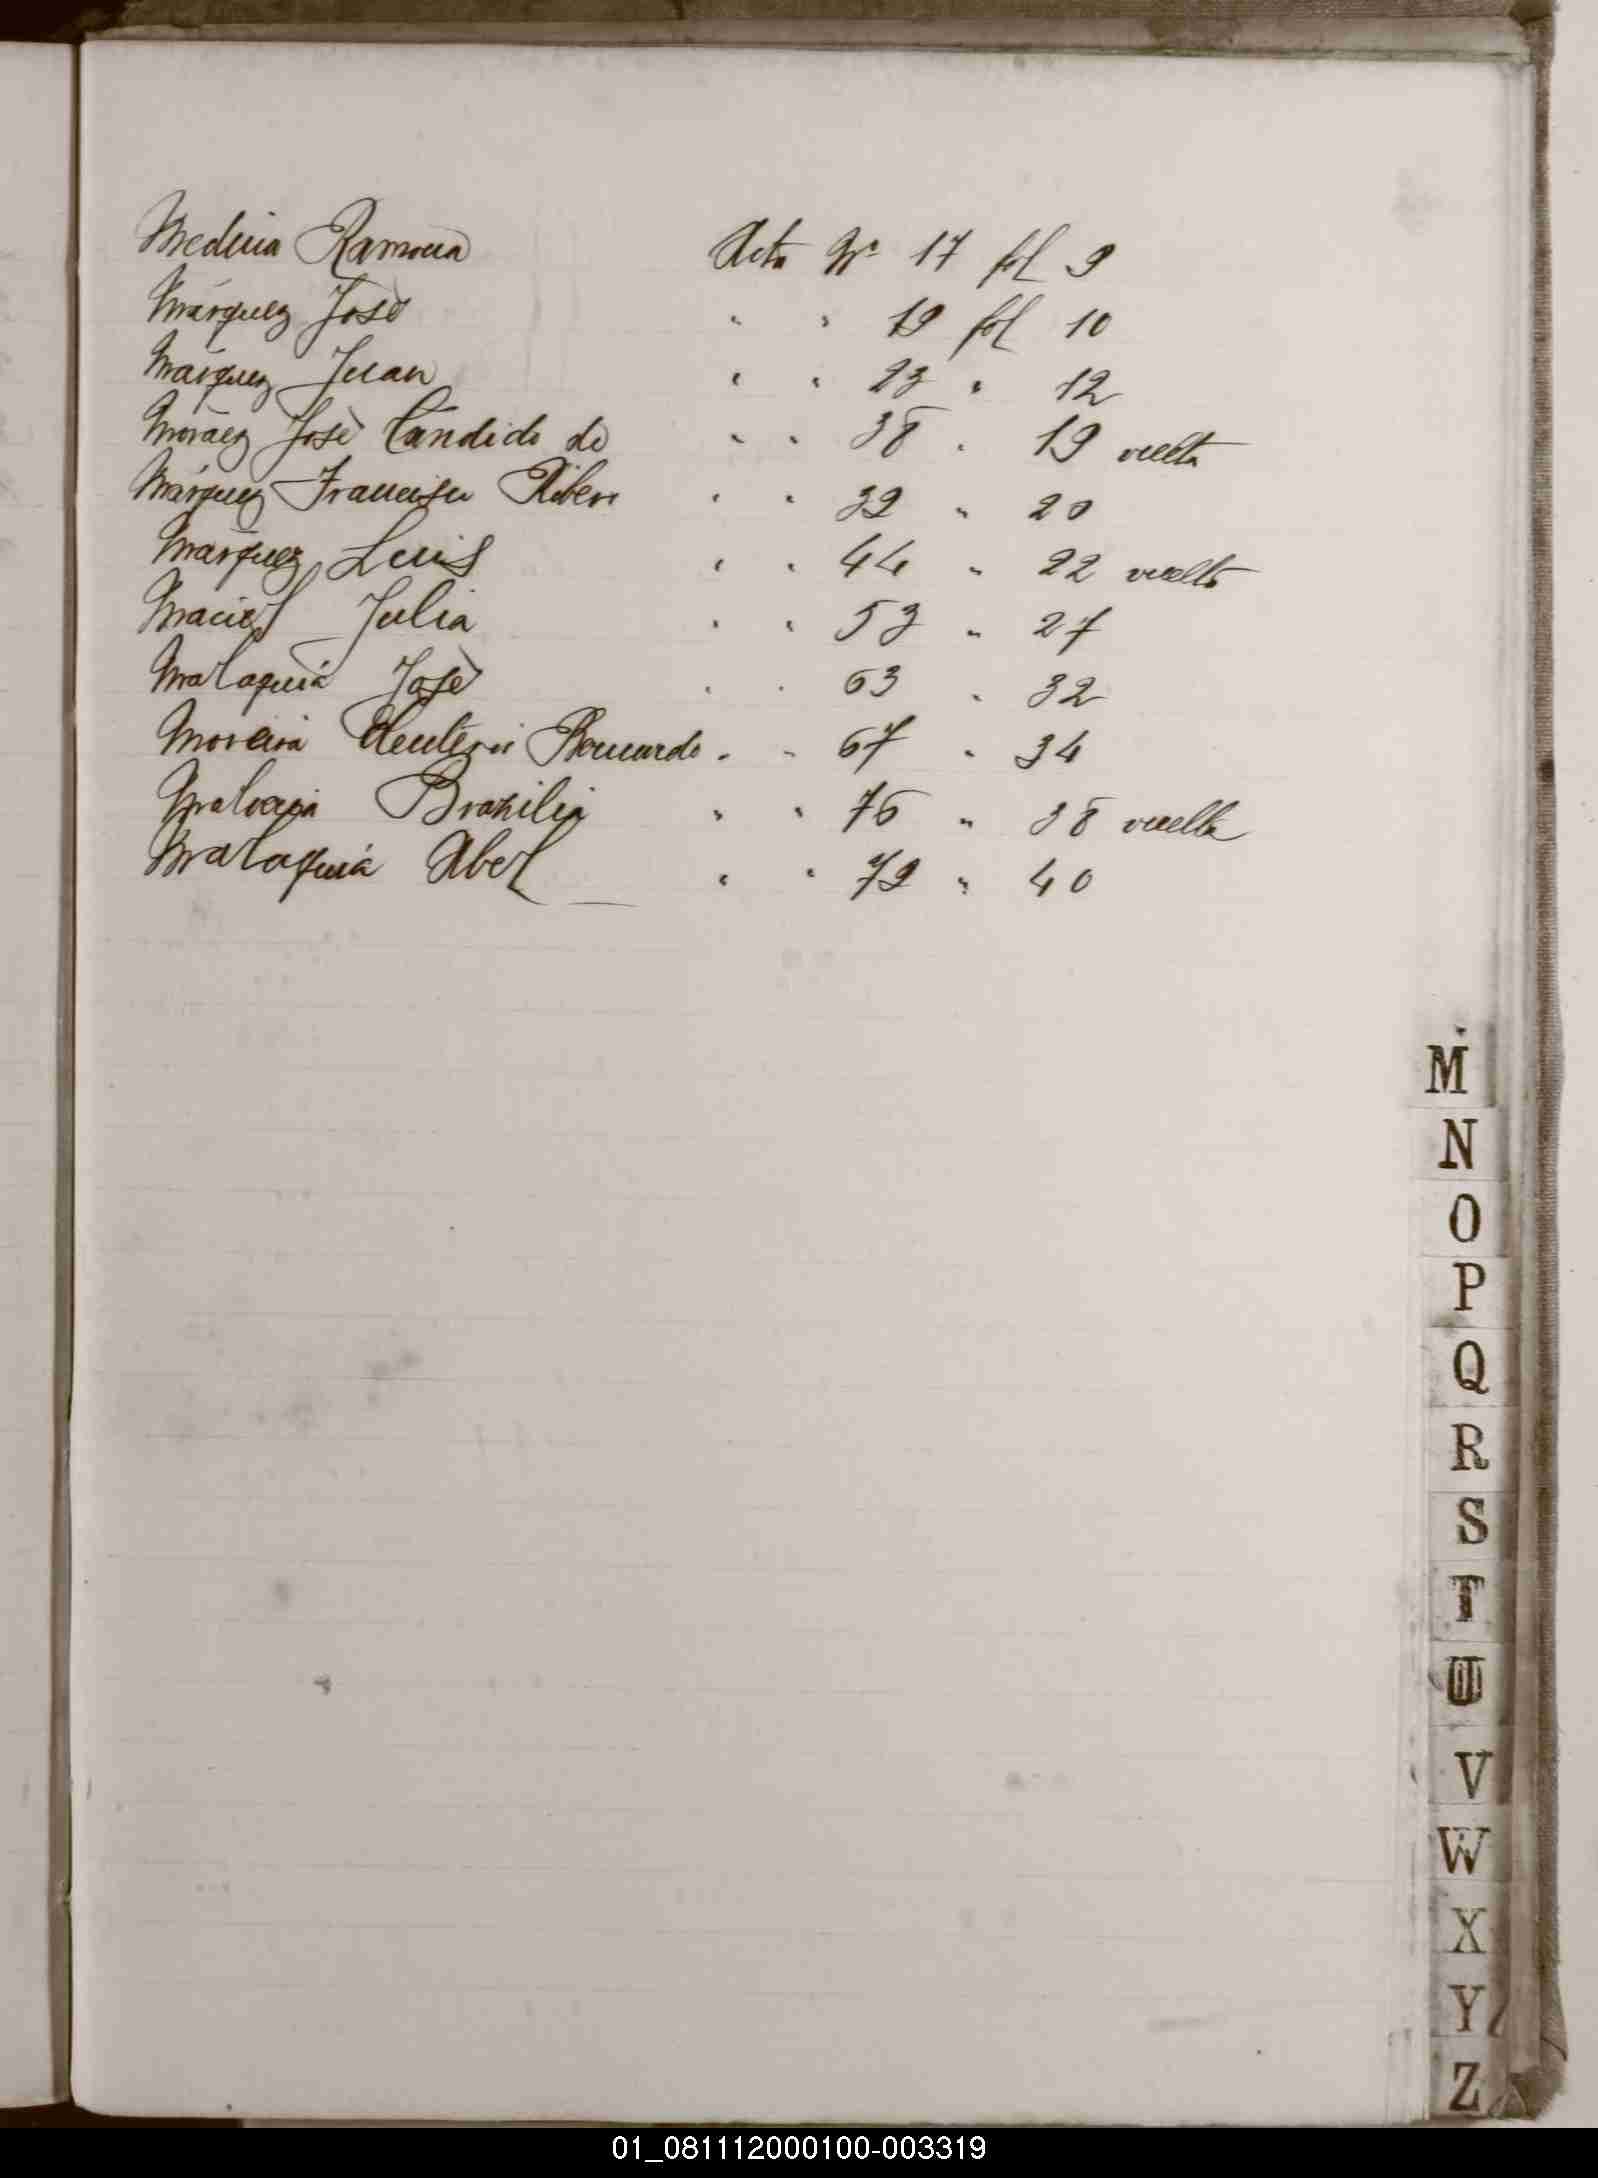 Medina Ramona Acta Nº 17 fol 9
Márquez José " " 19 fol 10
Márquez Juan " " 23 " 12
Moraez José Cándido de " " 38 " 19 vuelta
Márquez Francisco Ribero " " 39 " 20
Márquez Luis " " 44 " 22 vuelta
Maciel Julia " " 53 " 27
Malaquiá José " " 63 " 32
Moreira Eleuterio Bernardo " " 67 " 34
Brazilia " " 76 " 38 vuelta
Malaquiá Abel " " 79 " 40
M
N
O
P
Q
R
S
T
U
V
W
X
Y
Z
01_081112000100-003319